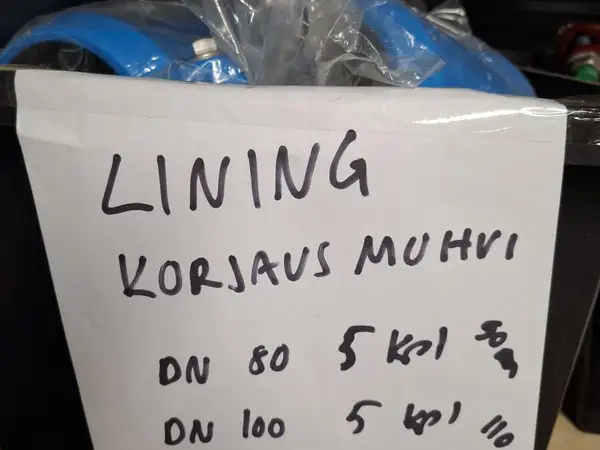 LINING
KORJAUS MUHVI
DN 80 5 kpl
DN 100 5 kpl 110